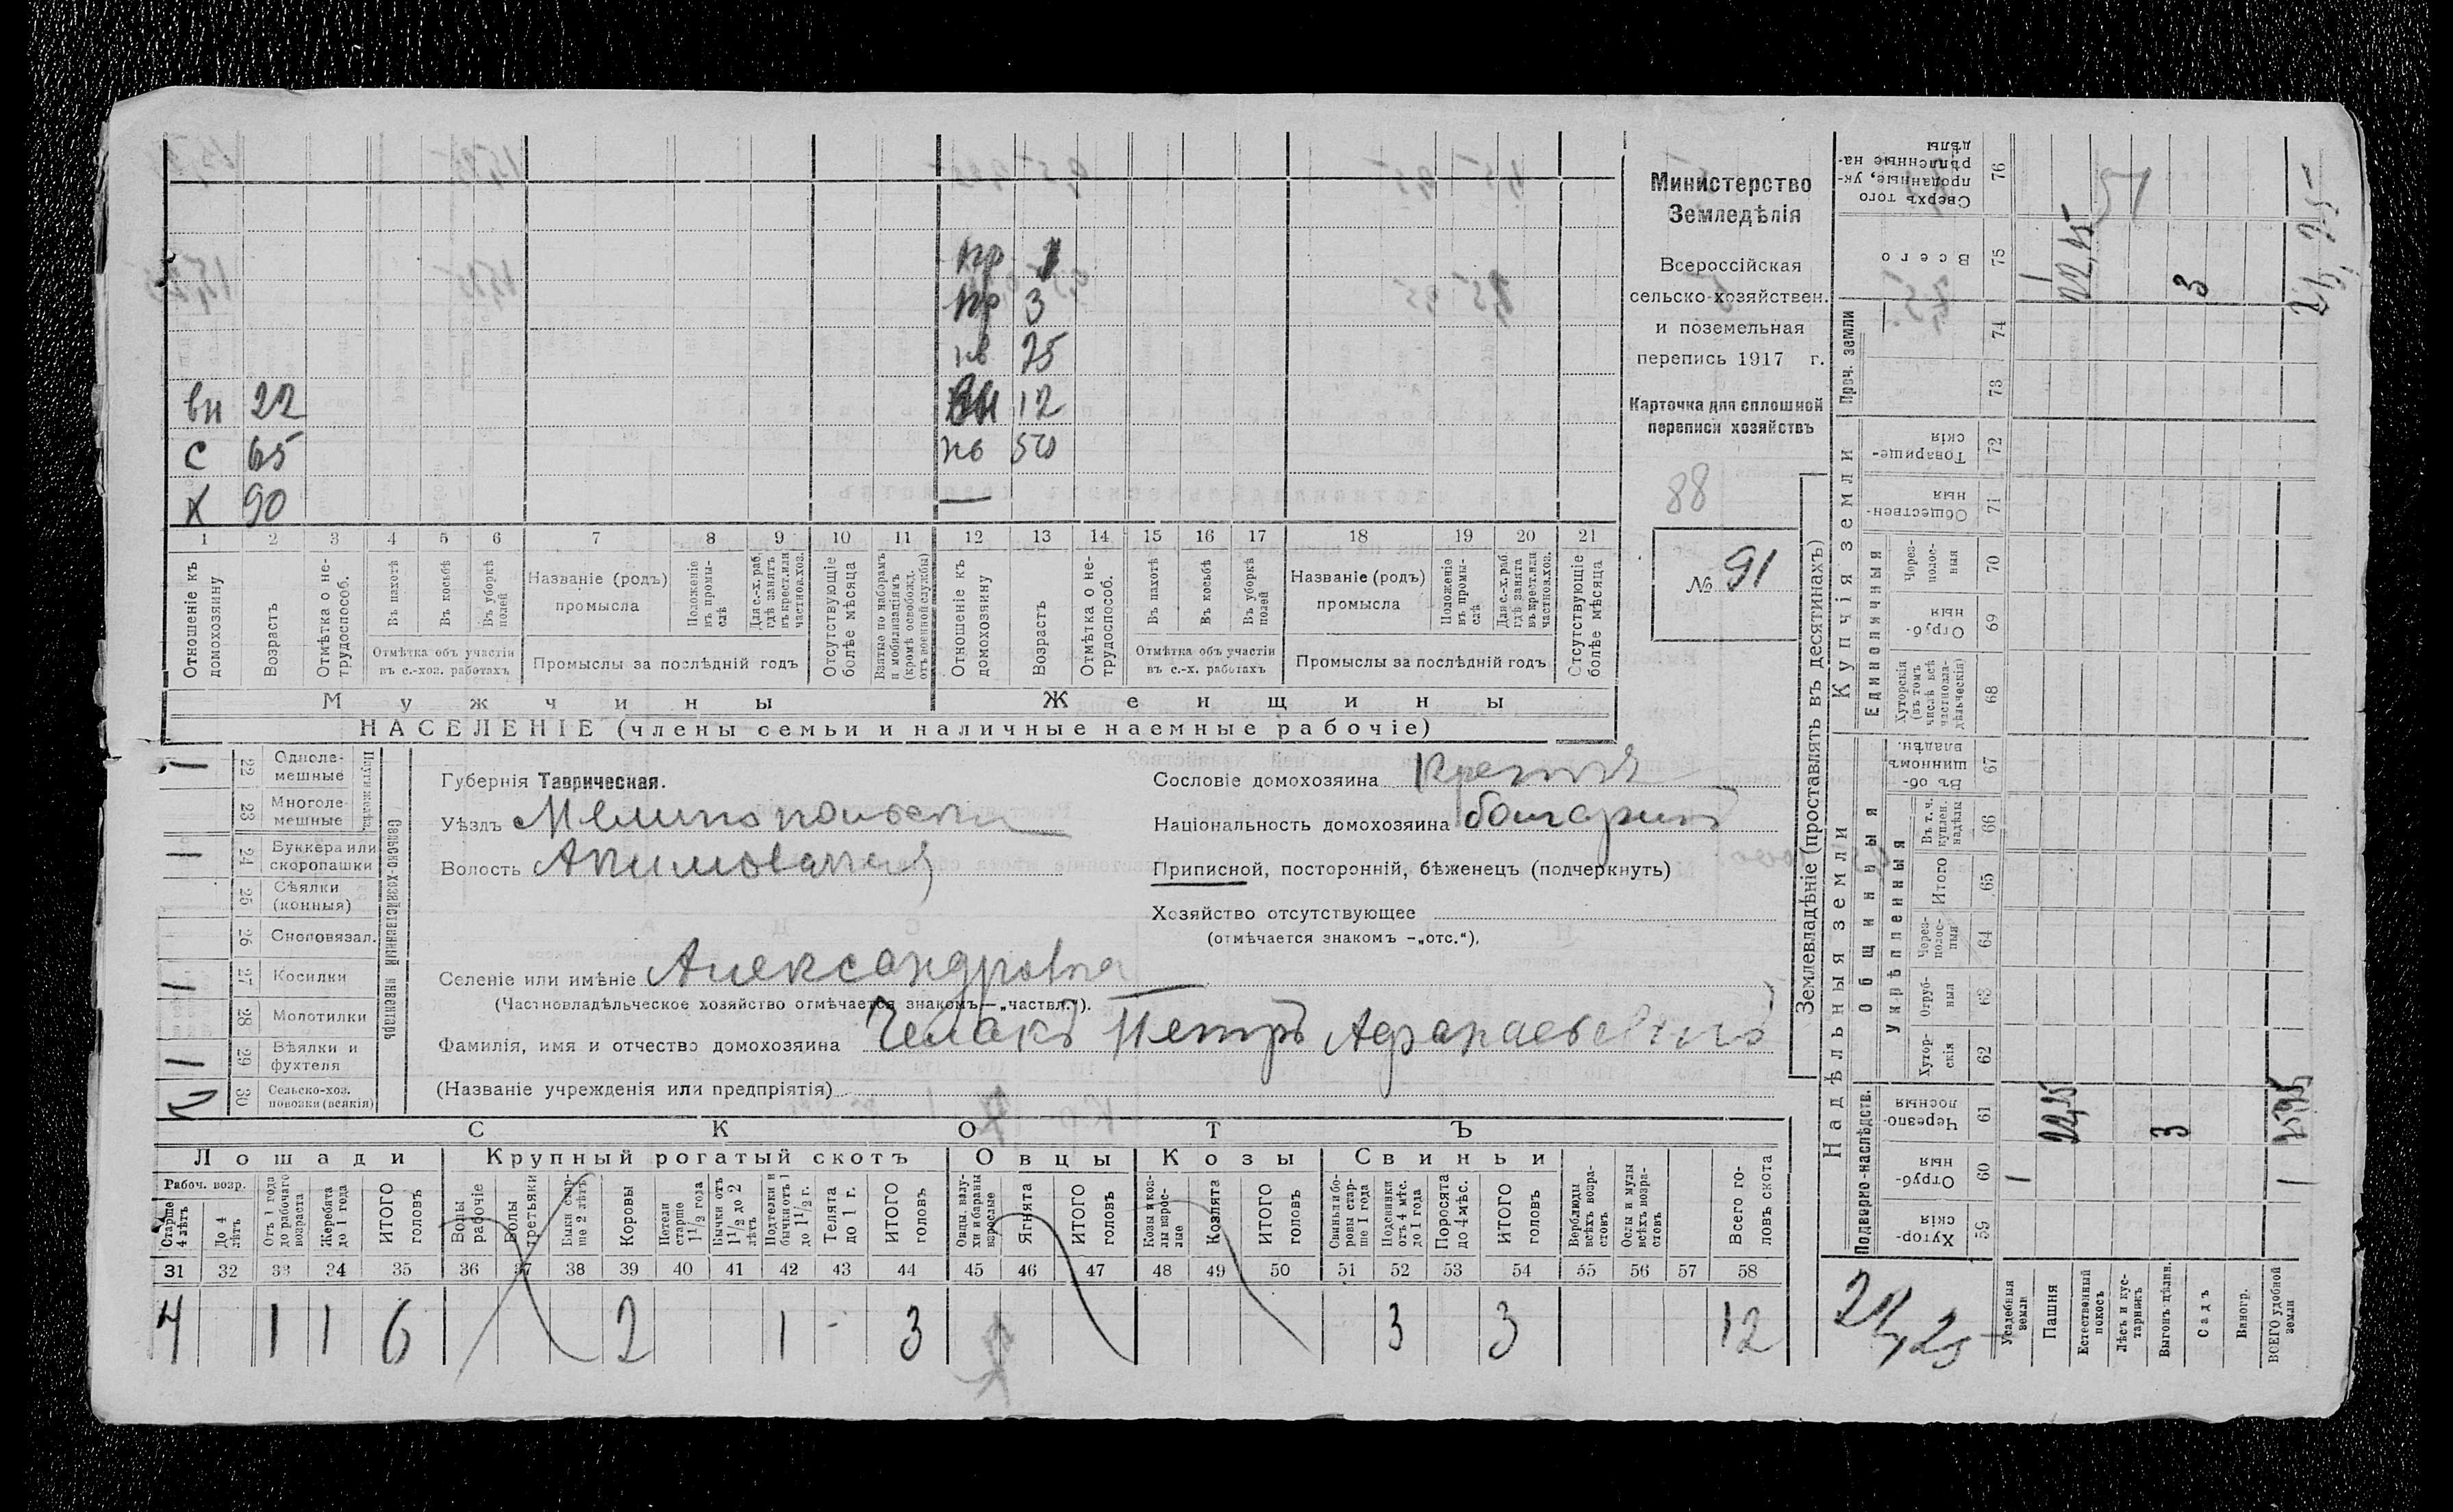 Министерство
Земледѣлія
Всероссійская
сельско-хозяйствен.
и поземельная
перепись 1917 г.
Карточка для сплошной
переписи хозяйствъ
88
№ 91
пр 1
пр 3
нв 25
вн 22 12
с 65 нв 50
х 90 —
1 2 3 4 5 6 7 8 9 10 11 12 13 14 15 16 17 18 19 20 21
Отношеніе къ домохозяину
Возрастъ
Отмѣтка о не-трудоспособ.
Въ пахотѣ
Въ косьбѣ
Въ уборкѣ полей
Отмѣтка объ участіи въ с.-хоз. работахъ
Названіе (родъ) промысла
Положеніе въ промы-слѣ
Для с.-х. раб. гдѣ занятъ въ крест. или частнов. хоз.
Промыслы за послѣдній годъ
Отсутствующіе болѣе мѣсяца
Взятые по наборамъ и мобилизаціямъ (кромѣ освобожд. отъ военной службы)
Отношеніе къ домохозяину
Возрастъ
Отмѣтка о не-трудоспособ.
Въ пахотѣ
Въ косьбѣ
Въ уборкѣ полей
Отмѣтка объ участіи въ с.-х. работахъ
Названіе (родъ) промысла
Положеніе въ промы-слѣ
Для с.-х. раб. гдѣ занята въ крест. или частнов. хоз.
Промыслы за послѣдній годъ
Отсутствующіе болѣе мѣсяца
Мужчины
Женщины
НАСЕЛЕНІЕ (члены семьи и наличные наемные рабочіе)
Сельско-хозяйственный инвентарь
22 Одноле-мешные 1
23 Многоле-мешные
24 Буккера или скоропашки 1
25 Сѣялки (конныя)
26 Сноповязал.
27 Косилки 1
28 Молотилки
29 Вѣялки и фухтеля 1
30 Сельско-хоз. повозки (всякія)
Губернія Таврическая.
Уѣздъ Мелитопольскій
Волость Акимовская
Селеніе или имѣніе Александровка
(Частновладѣльческое хозяйство отмѣчается знакомъ—„частвл.").
Фамилія, имя и отчество домохозяина Челакъ Петръ Афанасьевичъ
(Названіе учрежденія или предпріятія)
Сословіе домохозяина
Національность домохозяина болгаринъ
Приписной, посторонній, бѣженецъ (подчеркнуть)
Хозяйство отсутствующее
(отмѣчается знакомъ -„отс.").
СКОТЪ
Лошади Крупный рогатый скотъ Овцы Козы Свиньи
Рабоч. возр.
Старше 4 лѣтъ
До 4 лѣтъ
Отъ 1 года до рабочаго возраста
Жеребята до 1 года
ИТОГО головъ
Волы рабочіе
Волы третьяки
Быки стар-ше 2 лѣтъ
Коровы
Нетели старше 1 1/2 года
Бычки отъ 1 1/2 до 2 лѣтъ
Подтелки и бычки отъ 1 до 1 1/2 г.
Телята до 1 г.
ИТОГО головъ
Овцы, валу-хи и бараны взрослые
Ягнята
ИТОГО головъ
Козы и коз-лы взрос-лые
Козлята
ИТОГО головъ
Свиньи и бо-ровы стар-ше 1 года
Подсвинки отъ 4 мѣс. до 1 года
Поросята до 4 мѣс.
ИТОГО головъ
Верблюды всѣхъ возра-стовъ
Ослы и мулы всѣхъ возра-стовъ
Всего го-ловъ скота
31 32 33 34 35 36 37 38 39 40 41 42 43 44 45 46 47 48 49 50 51 52 53 54 55 56 57 58
4 1 1 6 2 1 - 3 3 3 12
Землевладѣніе (проставлять въ десятинахъ)
Надѣльныя земли
Купчія земли
Проч. земли
Подворно-наслѣдств.
Общинныя
Укрѣпленныя
Единоличныя
59 Хутор-скія
60 Отруб-ныя
61 Черезпо-лосныя
62 Хутор-скія
63 Отруб-ныя
64 Через-полос-ныя
65 Итого
66 Въ т. ч. куплен. надѣлы
67 Въ об-щинномъ владѣн.
68 Хуторскія (въ томъ числѣ всѣ частновла-дѣльческія)
69 Отруб-ныя
70 Через-полос-ныя
71 Обществен-ныя
72 Товарище-скія
73
74
75 Всего
76 Сверхъ того проданные, ук-рѣпленные на-дѣлы
Усадебныя земли
Пашня
Естественный покосъ
Лѣсъ и кус-тарникъ
Выгонъ цѣлин.
Садъ
Виногр.
ВСЕГО удобной земли
1
22,25
3
3